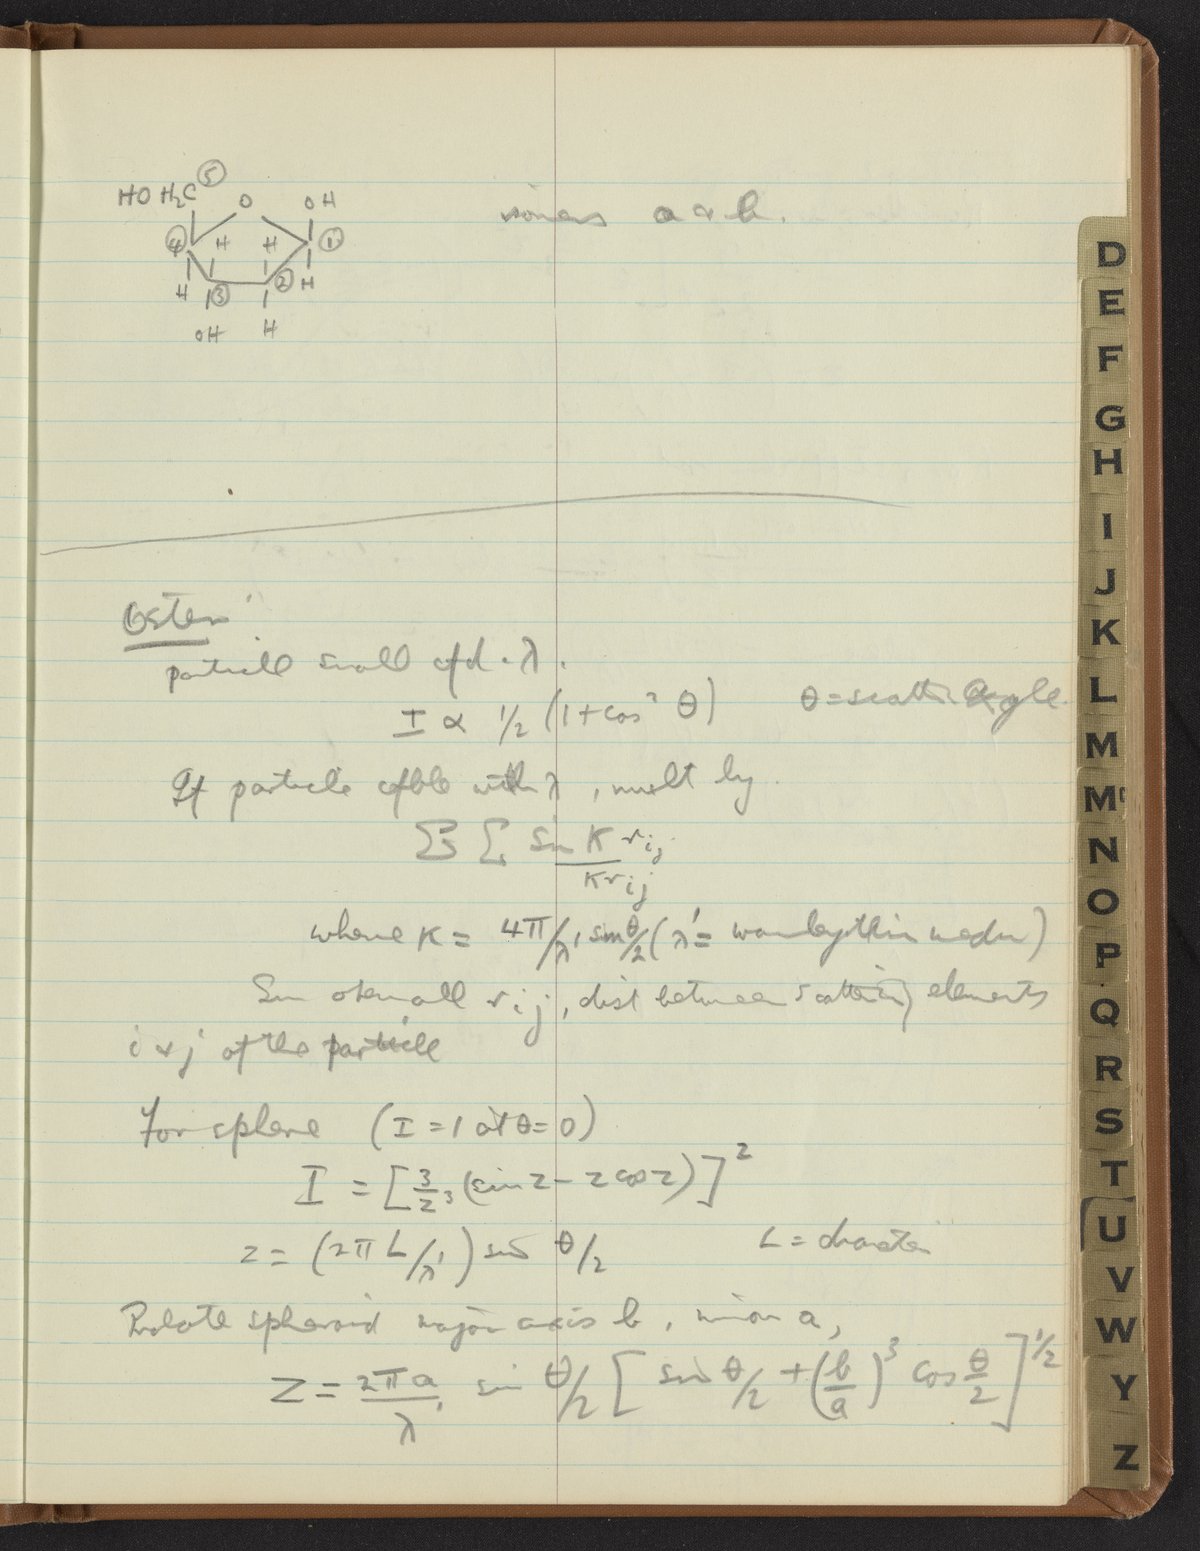 HO H₂C ⑤ O OH
④ H H ①
H ③ ② H
OH H
a & b.
Oster
particle small cfd. λ.
I ∝ 1/2 (1 + cos² θ) θ = scatter angle.
If particle cfble with λ, mult by
Σ Σ sin K rij / K rij
where K = 4π/λ' sin θ/2 (λ' = wavelength in medium)
Sum over all rij, dist between scattering elements
i & j of the particle
For sphere (I = 1 at θ = 0)
I = [3/z³ (sin z – z cos z)]²
z = (2πL/λ') sin θ/2 L = diameter
Prolate spheroid major axis b, minor a,
Z = 2πa/λ' sin θ/2 [sin θ/2 + (b/a)³ cos θ/2]^1/2
D
E
F
G
H
I
J
K
L
M
Mc
N
O
P
Q
R
S
T
U
V
W
Y
Z